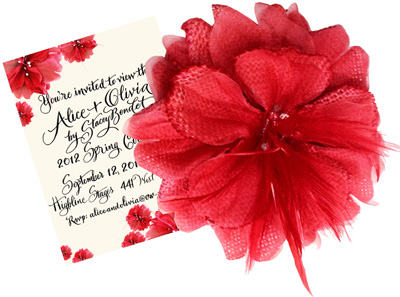 You're invited to view the
Alice + Olivia
by Stacey Bendet
2012 Spring Co
September 12, 201
Highline Stages 441 West
Rsvp: aliceandolivia@